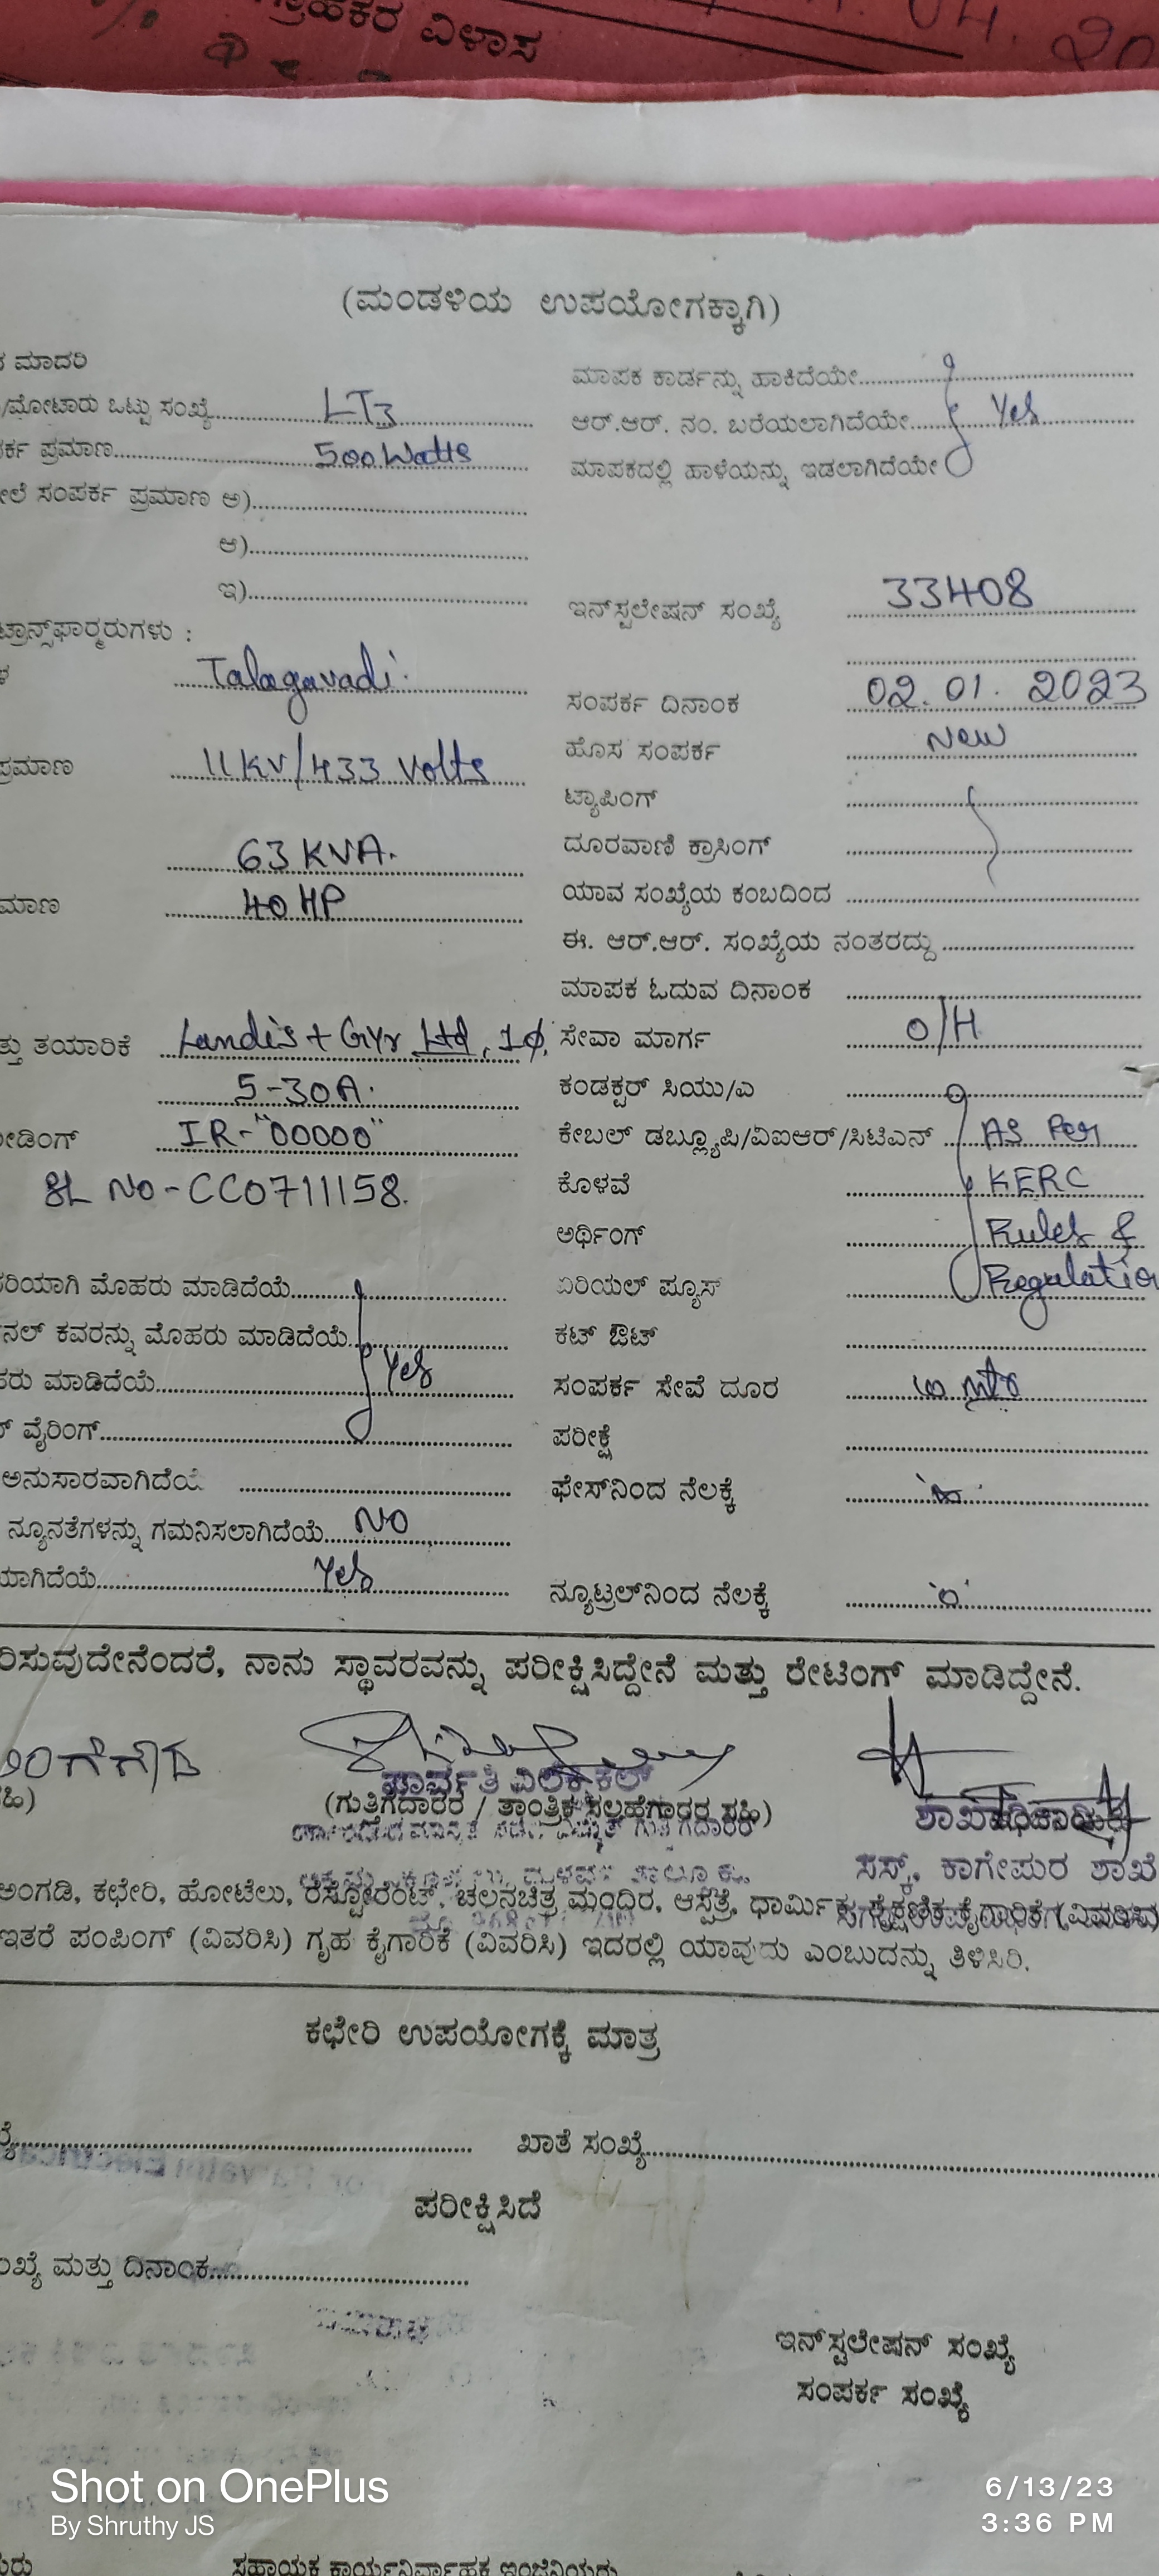 ಗ್ರಾಹಕರ ವಿಳಾಸ
04. 20
(ಮಂಡಳಿಯ ಉಪಯೋಗಕ್ಕಾಗಿ)
ಮಾದರಿ
ಮಾಪಕ ಕಾರ್ಡನ್ನು ಹಾಕಿದೆಯೇ
/ಮೋಟಾರು ಒಟ್ಟು ಸಂಖ್ಯೆ LT3
ಆರ್.ಆರ್. ನಂ. ಬರೆಯಲಾಗಿದೆಯೇ Yes
ಪ್ರಮಾಣ 500 Watts
ಮಾಪಕದಲ್ಲಿ ಹಾಳೆಯನ್ನು ಇಡಲಾಗಿದೆಯೇ
ಸಂಪರ್ಕ ಪ್ರಮಾಣ ಅ)
ಆ)
ಇ)
ಇನ್‌ಸ್ಟಲೇಷನ್ ಸಂಖ್ಯೆ 33408
ಟ್ರಾನ್ಸ್‌ಫಾರ್ಮರುಗಳು :
Talagavadi.
ಸಂಪರ್ಕ ದಿನಾಂಕ 02.01.2023
ಹೊಸ ಸಂಪರ್ಕ New
ಪ್ರಮಾಣ 11KV/433 Volts
ಟ್ಯಾಪಿಂಗ್
63 KVA.
ದೂರವಾಣಿ ಕ್ರಾಸಿಂಗ್
40 HP
ಯಾವ ಸಂಖ್ಯೆಯ ಕಂಬದಿಂದ
ಈ. ಆರ್.ಆರ್. ಸಂಖ್ಯೆಯ ನಂತರದ್ದು
ಮಾಪಕ ಓದುವ ದಿನಾಂಕ
ತಯಾರಿಕೆ Landis + Gyr Ltd, 1φ.
ಸೇವಾ ಮಾರ್ಗ O/H
5-30A.
ಕಂಡಕ್ಟರ್ ಸಿಯು/ಎ
IR-"00000"
ಕೇಬಲ್ ಡಬ್ಲ್ಯೂಪಿ/ವಿಐಆರ್/ಸಿಟಿಎನ್ As Per
SL NO-CC0711158.
ಕೊಳವೆ KERC
ಅರ್ಥಿಂಗ್ Rules &
ಮೊಹರು ಮಾಡಿದೆಯೆ
ಏರಿಯಲ್ ಪ್ಯೂಸ್ Regulation
ಕವರನ್ನು ಮೊಹರು ಮಾಡಿದೆಯೆ
ಕಟ್ ಔಟ್
ಮಾಡಿದೆಯೆ Yes
ಸಂಪರ್ಕ ಸೇವೆ ದೂರ
ವೈರಿಂಗ್
ಪರೀಕ್ಷೆ
ಅನುಸಾರವಾಗಿದೆಯೆ
ಫೇಸ್‌ನಿಂದ ನೆಲಕ್ಕೆ
ನ್ಯೂನತೆಗಳನ್ನು ಗಮನಿಸಲಾಗಿದೆಯೆ NO
Yes
ನ್ಯೂಟ್ರಲ್‌ನಿಂದ ನೆಲಕ್ಕೆ
ನಾನು ಸ್ಥಾವರವನ್ನು ಪರೀಕ್ಷಿಸಿದ್ದೇನೆ ಮತ್ತು ರೇಟಿಂಗ್ ಮಾಡಿದ್ದೇನೆ.
(ಗುತ್ತಿಗೆದಾರರ / ತಾಂತ್ರಿಕ ಸಲ್ಲಹೆಗಾರರ ಸಹಿ)
ಕಾಗೇಪುರ ಶಾಖೆ
ಅಂಗಡಿ, ಕಛೇರಿ, ಹೋಟೆಲು, ರೆಸ್ಟೋರೆಂಟ್, ಚಲನಚಿತ್ರ ಮಂದಿರ, ಆಸ್ಪತ್ರೆ, ಧಾರ್ಮಿಕ, ಶೈಕ್ಷಣಿಕ ಕೈಗಾರಿಕೆ (ವಿವರಿಸಿ)
ಇತರೆ ಪಂಪಿಂಗ್ (ವಿವರಿಸಿ) ಗೃಹ ಕೈಗಾರಿಕೆ (ವಿವರಿಸಿ) ಇದರಲ್ಲಿ ಯಾವುದು ಎಂಬುದನ್ನು ತಿಳಿಸಿರಿ.
ಕಛೇರಿ ಉಪಯೋಗಕ್ಕೆ ಮಾತ್ರ
ಖಾತೆ ಸಂಖ್ಯೆ
ಪರೀಕ್ಷಿಸಿದೆ
ಮತ್ತು ದಿನಾಂಕ
ಇನ್‌ಸ್ಟಲೇಷನ್ ಸಂಖ್ಯೆ
ಸಂಪರ್ಕ ಸಂಖ್ಯೆ
Shot on OnePlus
By Shruthy JS
6/13/23
3:36 PM
ಸಹಾಯಕ ಕಾರ್ಯನಿರ್ವಾಹಕ ಇಂಜಿನಿಯರು